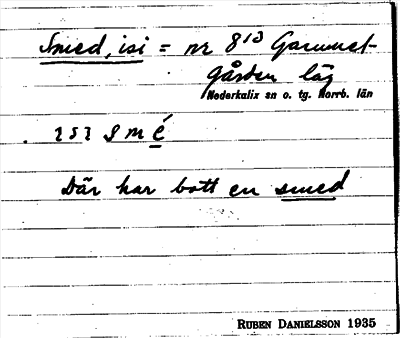 Smed, isi = nr 8¹³ Gammel-
gården läg
Nederkalix sn o. tg. Norrb. län
ɪsɪ smé
Där har bott en smed
RUBEN DANIELSSON 1935